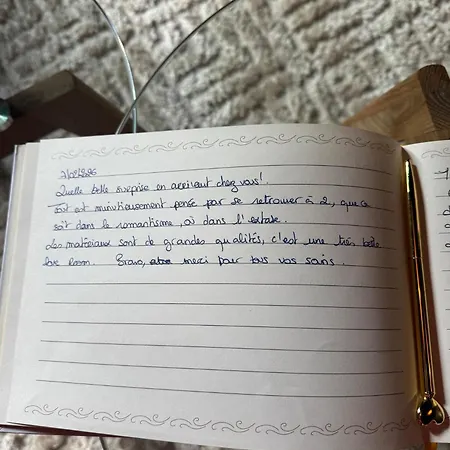 Quelle belle surprise en arrivant chez vous!
Tout est minutieusement pensé par se retrouver à 2, que ce
soit dans le romantisme, où dans l'extase.
Les matériaux sont de grandes qualités, c'est une très belle
love room. Bravo, merci pour tous vos soins.